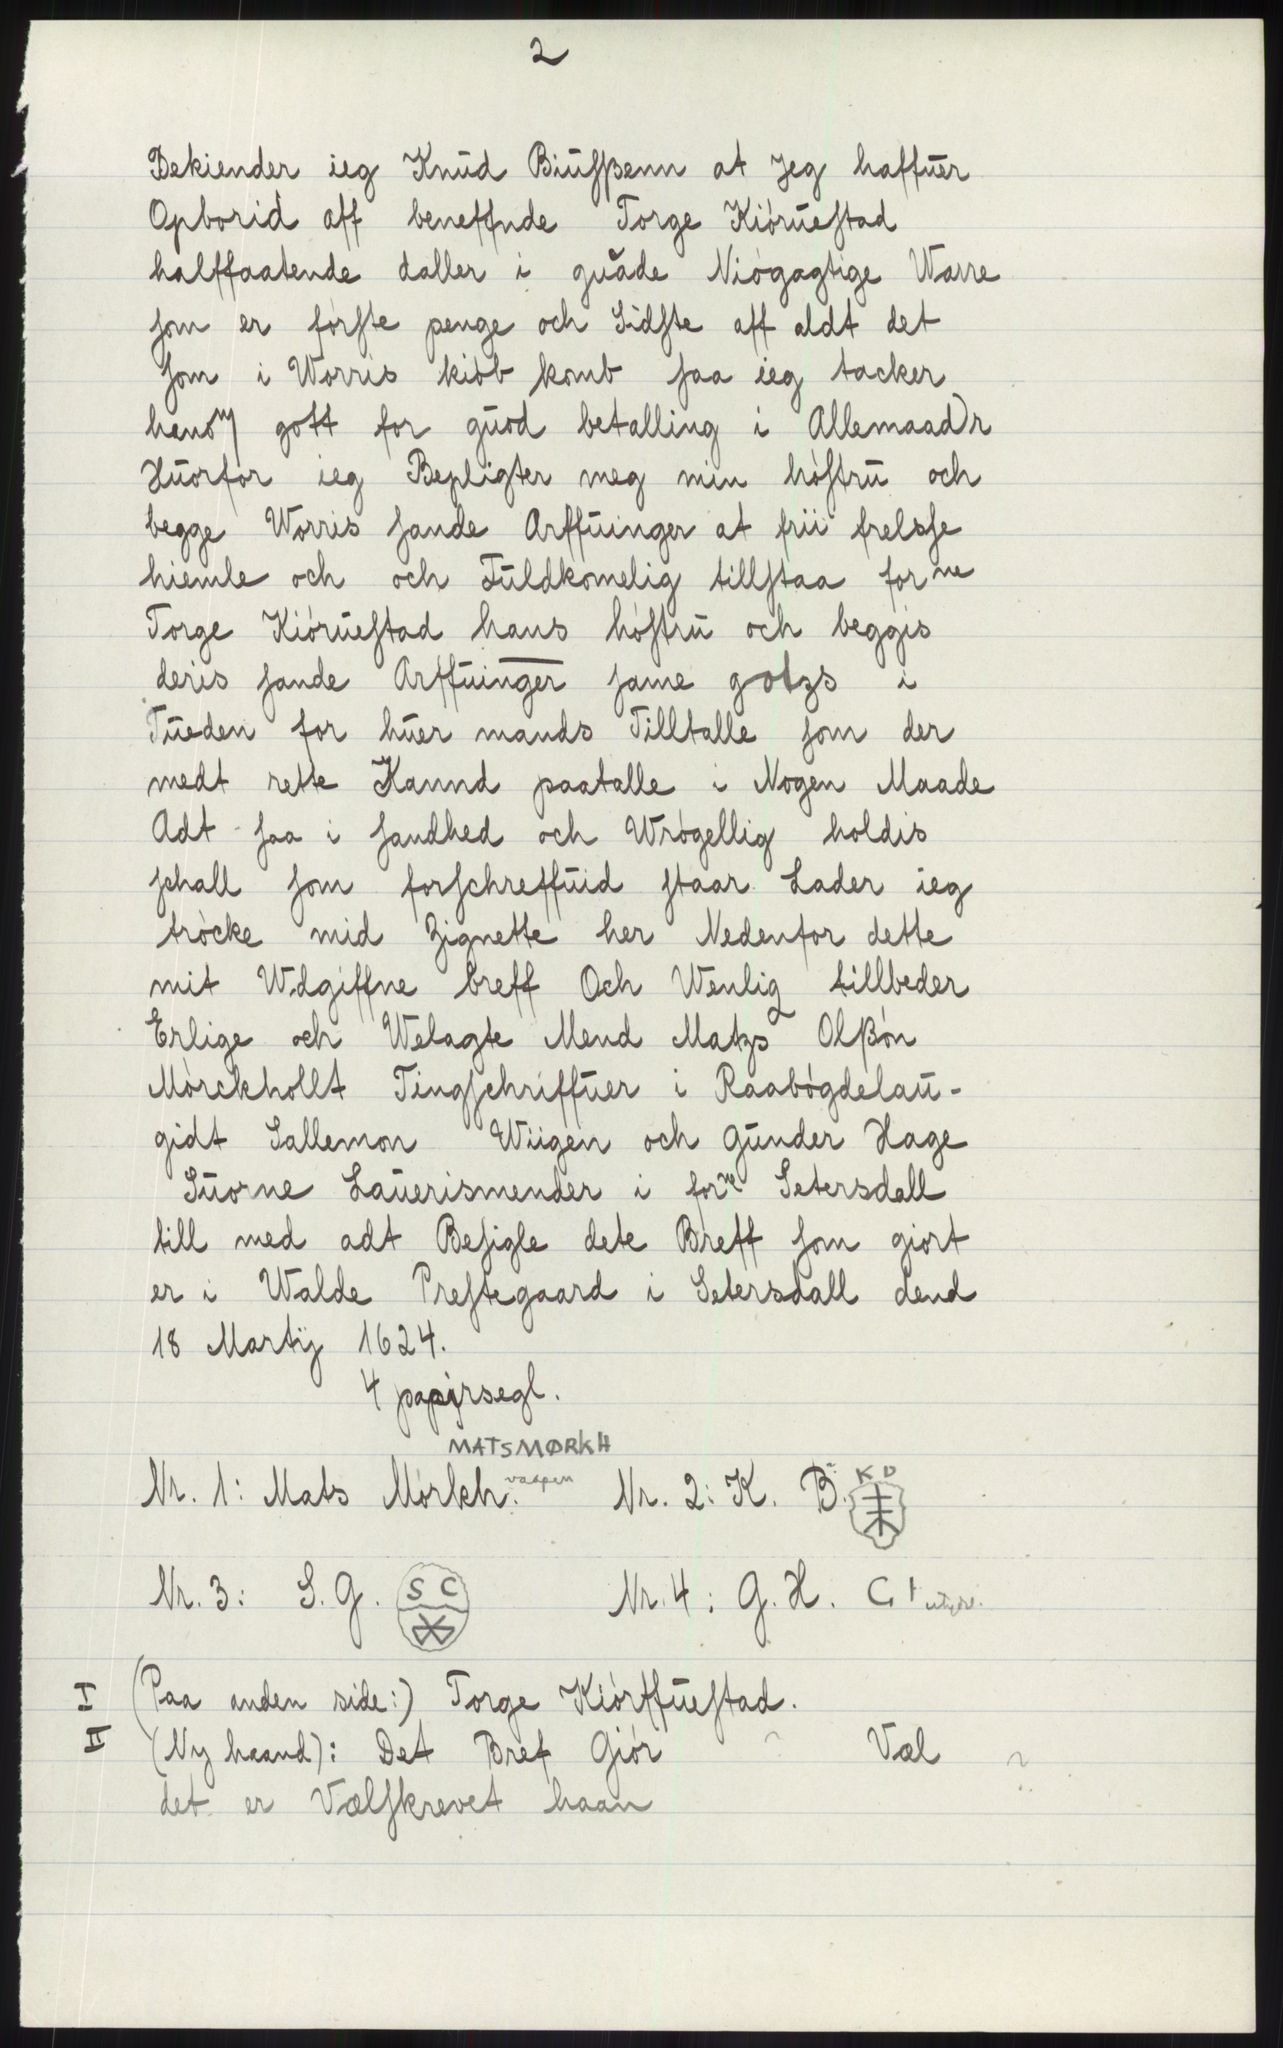 2
Bekiender ieg Knud Biuſßenn at Jeg haffuer
Opborid aff beneffnde Torge Kiórueſtad
halffaatende daller i guode Niógagtige Warre
ſom er fórſte penge och Sidſte aff aldt det
ſom i Worris kiób komb ſaa ieg tacker
hanom gott for guod betalling i Allemaader
Huorfor ieg Bepligter meg min hóſtru och
begge Worris ſande Arffuinger at frii frelsſe
hiemle och och Fuldkomelig tillſtaa forne
Torge Kiórueſtad hans hóſtru och beggis
deris ſande Arffuinger ſame gotzs i
Tueden for huer mands Tilltalle ſom der
medt rette Kannd paatalle i Nogen Maade
Adt ſaa i ſandhed och Wrógellig holdis
ſchall ſom forſchreffuid ſtaar Lader ieg
trócke mid Zignette her Nedenfor dette
mit Wdgiffne breff Och Wenlig tillbeder
Erlige och Welagte Mend Matzs Olßón
Mórckhollt Tingſchriffuer i Raabógdelau-
gidt Sallemon Wiigen och Gunder Hage
Suorne Lauerismender i forne Setersdall
till med adt Beſigle dete Breff ſom giort
er i Walde Preſtegaard i Setersdall dend
18 Martij 1624.
4 papirsegl.
MATSMØRKH
Nr. 1: Mats Mórkh. vaapen Nr. 2: K. B. K D
Nr. 3: S. G. S C Nr. 4: G. H. G
I (Paa anden side:) Torge Kiórffueſtad.
II (Ny haand): Det Bref Giór Væl
det er Vælſkrevet haan